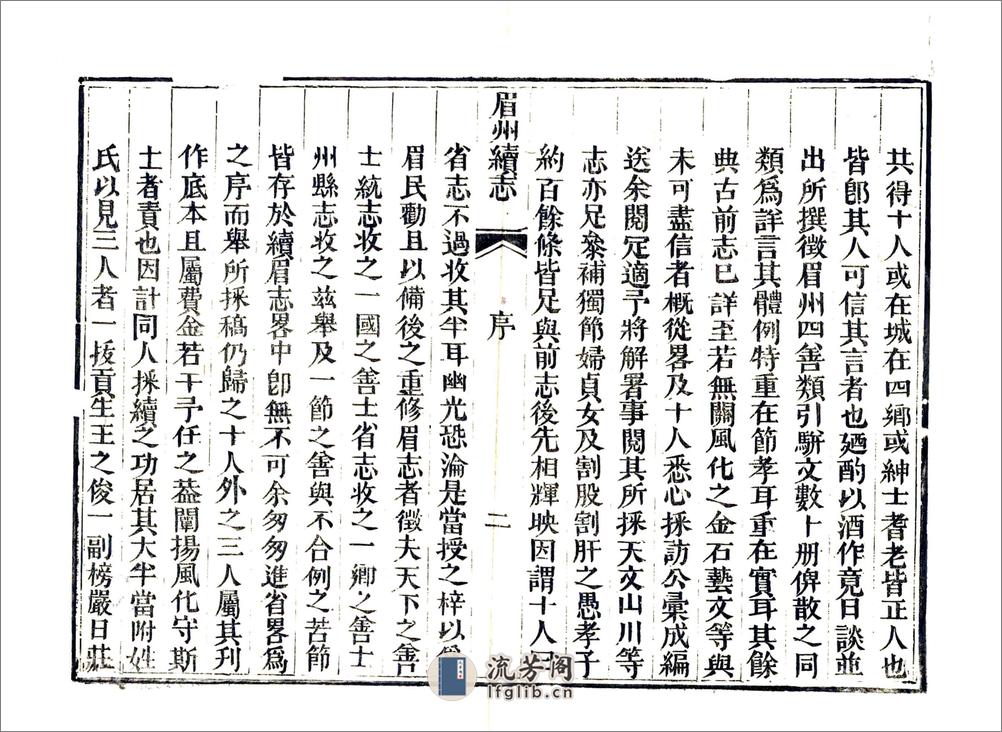 共得十人或在城在四鄕或紳士耆老皆正人也
皆卽其人可信其言者也廼酌以酒作竟日談並
出所撰徵眉州四善類引駢文數十册俾散之同
類爲詳言其體例特重在節孝耳重在實耳其餘
典古前志巳詳至若無關風化之金石藝文等與
未可盡信者槪從畧及十人悉心採訪公彙成編
送余閱定適予將解署事閱其所採天文山川等
志亦足叅補獨節婦貞女及割股割肝之愚孝子
約百餘條皆足與前志後先相輝映因謂十人曰
眉州續志
序
二
省志不過收其半耳幽光恐淪是當授之梓以爲
眉民勸且以備後之重修眉志者徵夫天下之善
士統志收之一國之善士省志收之一鄕之善士
州縣志收之兹舉及一節之善與不合例之苦節
皆存於續眉志畧中卽無不可余匆匆進省畧爲
之序而舉所採稿仍歸之十人外之三人屬其刋
作底本且屬費金若干予任之葢闡揚風化守斯
士者責也因計同人採續之功居其大半當附姓
氏以見三人者一拔貢生王之俊一副榜嚴日莊
流芳阁
lfglib.cn